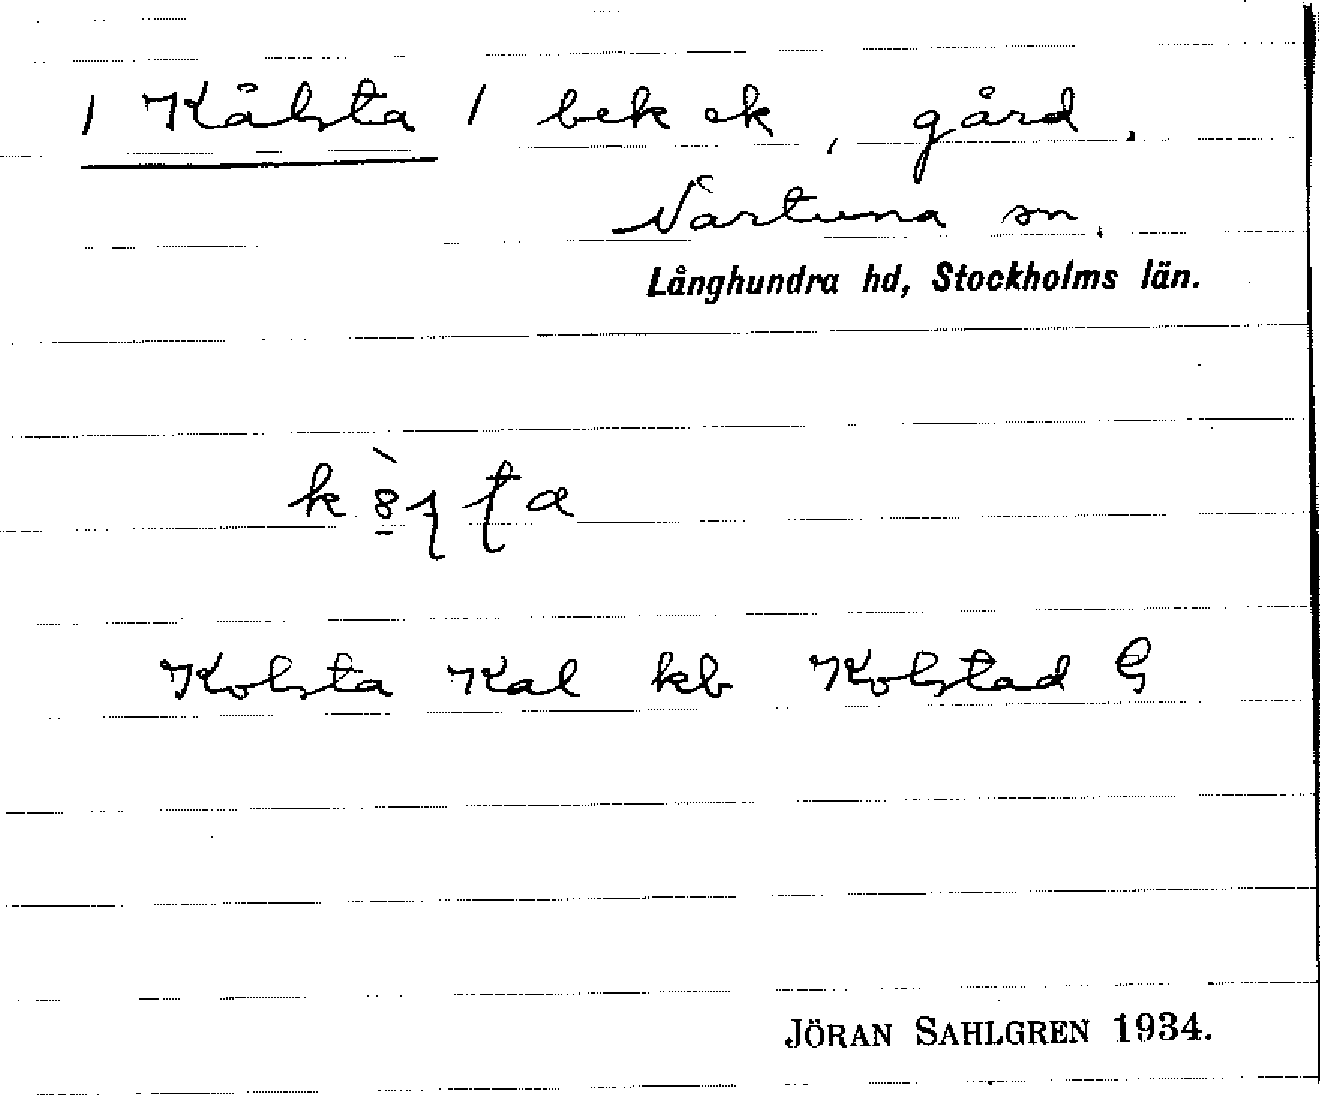 / Kålsta / bek ek, gård.
Närtuna sn.
Långhundra hd, Stockholms län.
Kolsta Kal kb Kolstad G
JÖRAN SAHLGREN 1934.